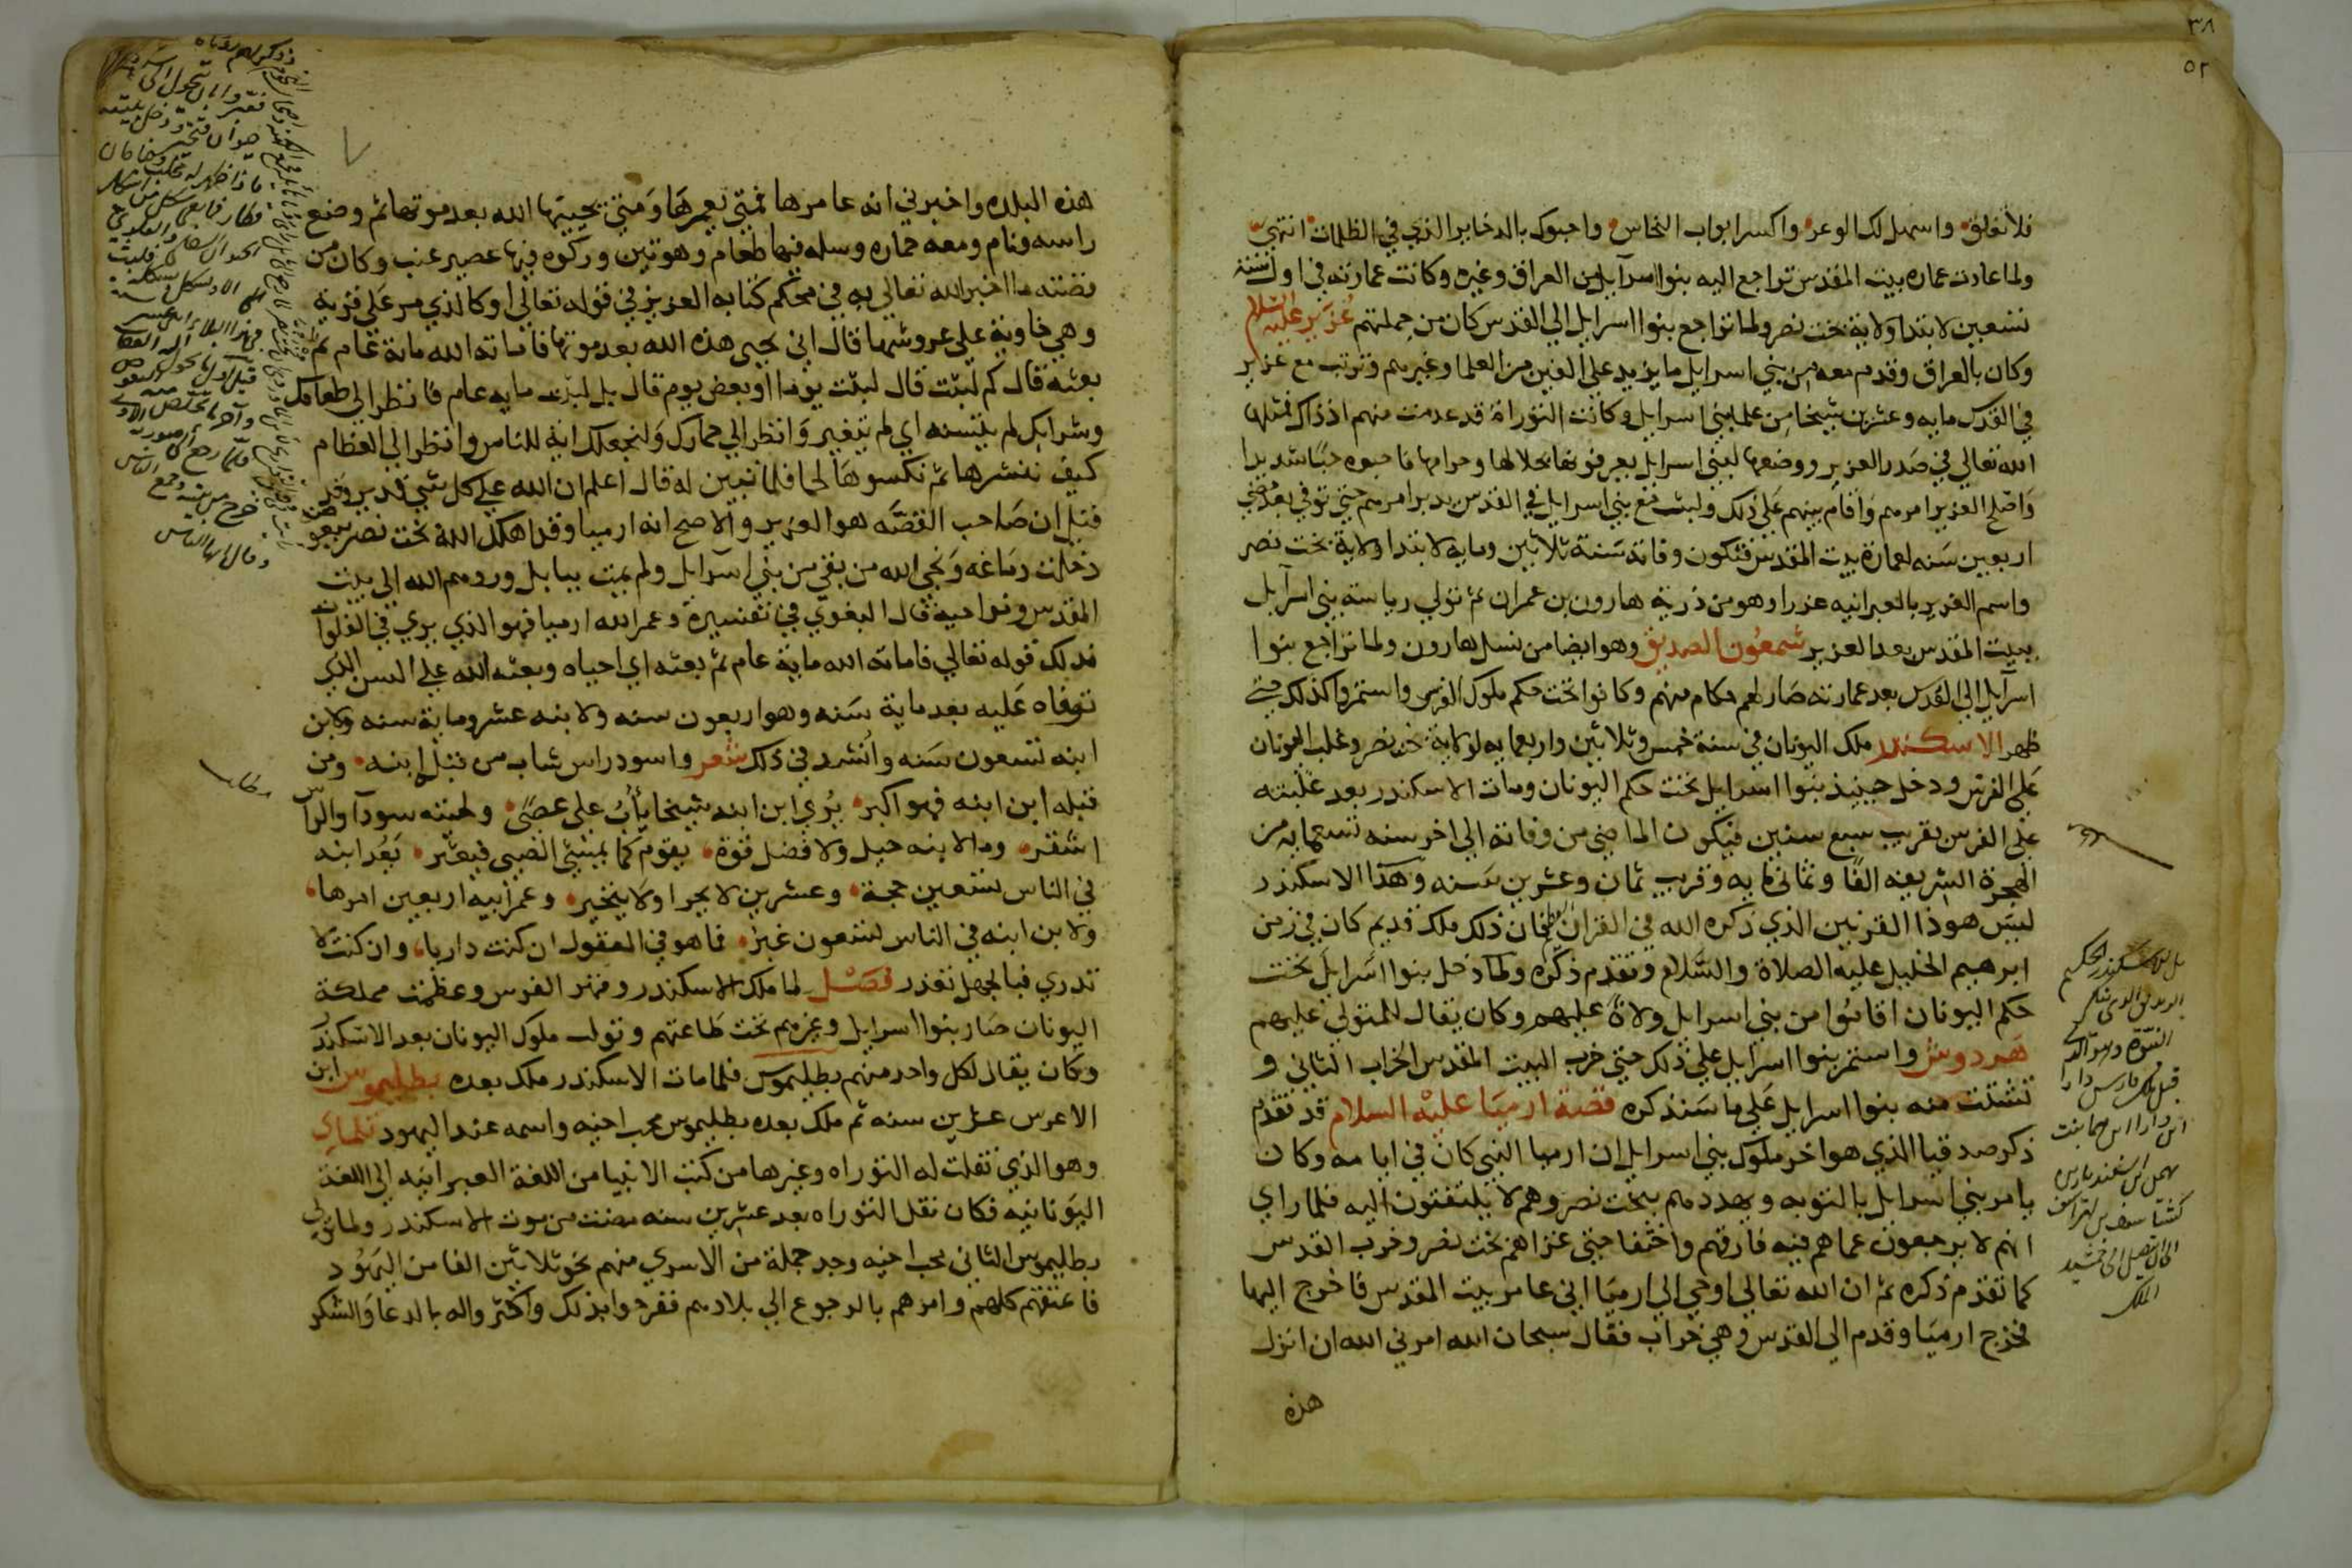 ٣٨
٥٢
فلا تغلق واسهل لك الوعر واكسر ابواب النحاس واحبوك بالدخاير الذي في الظلمات انتهي
ولما عادت عماره بيت المقدس تراجع اليه بنوا اسرآيل من العراق وغيره وكانت عمارته في اول سنة
تسعين لابتدا ولاية بخت نصر ولما تراجع بنوا اسرايل الي القدس كان من جملتهم عُزَير عليه السلام
وكان بالعراق وقدم معه من بني اسرايل ما يزيد علي الفين من العلما وغيرهم وترتب مع عزاير
في القدس مايه وعشرين شيخا من علما بني اسرايل وكانت التوراة قد عدمت منهم اذ ذاك فمثلها
الله تعالي في صَدر العزير ووضعها لبني اسرايل يعرفونها بحلالها وحرامها فاحبوه حبًا شديدا
وَاصْلح العزير امرهم وَاقام بينهم علي ذلك ولبث مع بني اسرايل في القدس يدبر امرهم حتي توفي بعد مُضي
اربعين سَنه لعمارة بيت المقدس فتكون وفاته سَنة ثلاثين ومايه لابتدا ولاية بخت نصر
واسم العزير بالعبرانيه عزرا وهو من ذرية هارون بن عمران ثم تولي رياسة بني اسرآيل
ببيت المقدس بعد العزير شمعون الصديق وهو ايضا من نسل هارون ولما تراجع بنوا
اسرآيل الي القدس بعد عمارته صَار لهم حكام منهم وكانوا تحت حكم ملوك الفرس واستمروا كذلك حتي
ظهر الاسكندر ملك اليونان في سنة خمس وثلاثين واربعمايه لولاية بخت نصر وغلب اليونان
علي الفرس ودخل حينيذ بنوا اسرايل تحت حكم اليونان ومات الاسكندر بعد غلبته
علي الفرس بقريب سبع سنين فيكون الماضي من وفاته الي اخر سنه تسعمايه من
الهجرة الشريفه الفًا وثماني مايه وقريب ثمان وعشرين سَنه وهَذا الاسكندر
ليسَ هو ذا القرنين الذي ذكره الله في القران العظيم فان ذلك ملك قديم كان في زمن
ابرهيم الخليل عليه الصلاة والسَّلام وتقدم ذكره ولما دخل بنوا اسرايل تحت
حكم اليونان اقامُوا من بني اسرايل ولاةً عليهم وكان يقال للمتولي عليهم
هَردوش واستمر بنوا اسرايل علي ذلك حتي خرب البيت المقدس الخراب الثاني و
تشتت منه بنوا اسرايل علي ما سَنذكره قصة ارميَا عليْه السلام قد تقدم
ذكر صدقيا الذي هو اخر ملوك بني اسرايل ان ارميا النبي كان في ايامه وكان
يامر بني اسرايل بالتوبه ويهددهم ببخت نصر وهم لا يلتفتون اليه فلما راي
انهم لا يرجعون عما هم فيه فارقهم واختفا حتي غزاهم بخت نصر وخرب القدس
كما تقدم ذكره ثم ان الله تعالي اوحي الي ارميَا اني عامر بيت المقدس فاخرج اليها
فخرج ارميَا وقدم الي القدس وهي خراب فقال سبحان الله امرني الله ان انزل
هذه
الملك
هذه البلده واخبرني انه عامرها فمتي يعمرهَا وَمَتي يحييها الله بعد موتها ثم وضع
راسه ونام ومعه حماره وسله فيها طعام وهو تين وركوه فيها عصير عنب وكان من
قصته ما اخبر الله تعالي به في محكم كتابه العزيز في قوله تعالي او كالذي مر عَلي قرية
وهي خاوية علي عروشها قال اني يحيي هذه الله بعد موتها فاماته الله ماية عام ثم
بعثه قال كم لبثت قال لبثت يوما او بعض يوم قال بل لبثت مايه عام فانظر الي طعامك
وشرابك لم يتسنه اي لم يتغير وَانظر الي حمارك وَلنجعلك اية للناس وانظر الي العظام
كيف ننشرها ثم نكسوهَا لحما فلما تبين له قال اعلم ان الله علي كل شي قدير وقد
قيل ان صَاحب القصَّه هو العزير والاصح انه ارميا وقد اهلك الله بخت نصر ببعوضة
دخلت دماغه وَنجي الله من بقي من بني اسرآيل ولم يمت ببابل وردهم الله الي بيت
المقدس ونواحيه قال البغوي في تفسيره وعمر الله ارميا فهو الذي يري في الفلوات
فذلك قوله تعالي فاماته الله ماية عام ثم بعثه اي احياه وبعثه الله علي السن الذي
توفاه عَليه بعد ماية سَنه وهو اربعون سنه ولابنه عشر وماية سنه ولابن
ابنه تسعون سَنه وانشد في ذلك شعر واسود راس شاب من قبل ابنه ومن
قبله ابن ابنه فهو اكبر يُري ابن ابنه شيخا يأتي علي عصًي ولحيته سودآ والراس
اشقر وما لابنه حيل ولا فضل قوة يقوم كما يمشي الصبي فيعثر يَعُد ابنه
في الناس تسعين حجة وعشرين لا يجرا ولا يتبختر وعمر ابيه اربعين امرها
ولابن ابنه في الناس تسعون غبر فما هو في المعقول ان كنت داريا وان كنت لا
تدري فبالجهل تعذر فصْل لما ملك الاسكندر وقهر الفرس وعظمت مملكة
اليونان صَار بنوا اسرايل وغيرهم تحت طاعتهم وتولت ملوك اليونان بعد الاسكندر
وكان يقال لكل واحد منهم بطليموس فلما مات الاسكندر ملك بعده بطليموس ابن
الاعرس عشرين سنه ثم ملك بعده بطليموس محب اخيه واسمه عند اليهود تلماي
وهو الذي نقلت له التوراه وغيرها من كتب الانبيا من اللغة العبرانيه الي اللغة
اليوَنانيه فكان نقل التوراه بعد عشرين سنه مضت من موت الاسكندر ولما ولي
بطليموس الثاني محب اخيه وجد جملة من الاسري منهم نحو ثلاثين الفا من اليهُود
فاعتقهم كلهم وامرهم بالرجوع الي بلادهم ففرحوا بذلك واكثر واله بالدعا وَالشكر